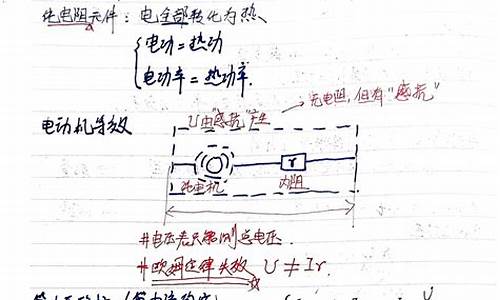 纯电阻元件：电全部转化为热、
电功=热功
电功率=热功率.
无电阻,但有"感抗"
电动机等效
U由"感抗"产生
r
纯电机
内阻
#电压表只能测总电压.
#欧姆定律失效 U≠Ir.